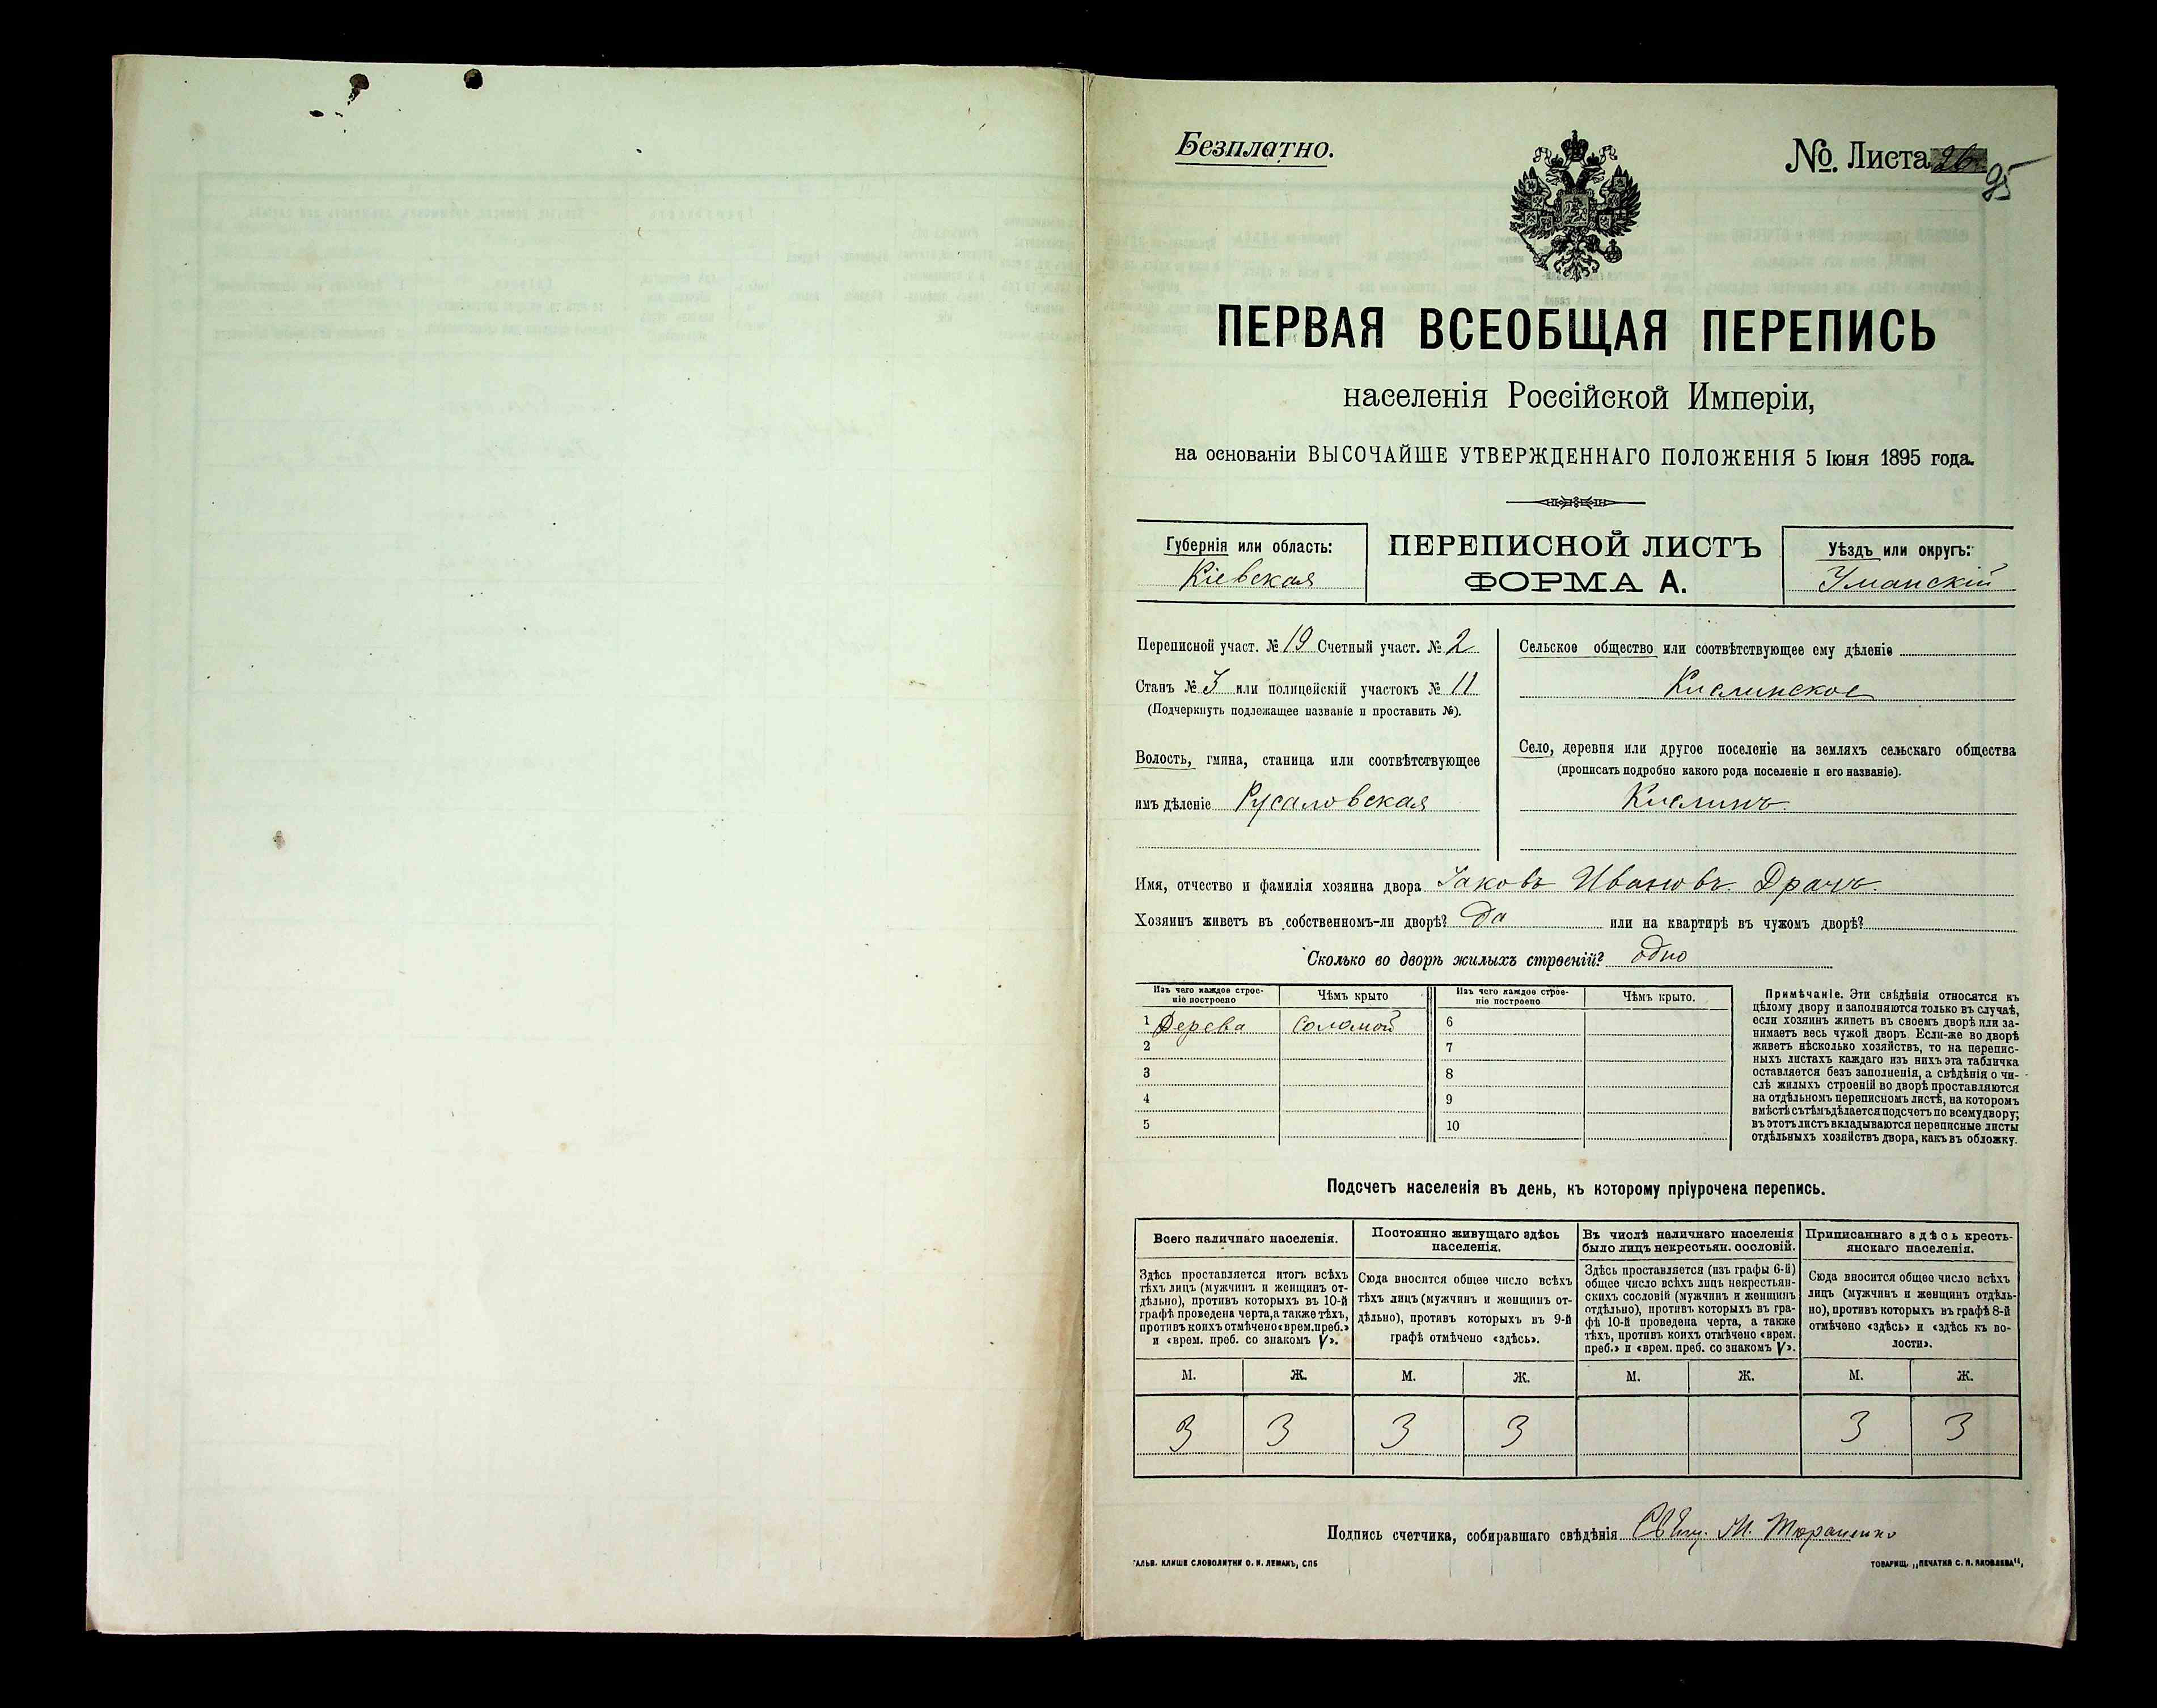 Безплатно.
№. Листа 26 95
ПЕРВАЯ ВСЕОБЩАЯ ПЕРЕПИСЬ
населенія Россійской Имперіи,
на основаніи ВЫСОЧАЙШЕ УТВЕРЖДЕННАГО ПОЛОЖЕНІЯ 5 Іюня 1895 года.
Губернія или область:
Кіевская
ПЕРЕПИСНОЙ ЛИСТЪ
ФОРМА А.
Уѣздъ или округъ:
Уманскій
Переписной участ. № 19 Счетный участ. № 2
Станъ № 3 или полицейскій участокъ № 11
(Подчеркнуть подлежащее названіе и проставить №).
Волость, гмина, станица или соотвѣтствующее
имъ дѣленіе Русаловская
Сельское общество или соотвѣтствующее ему дѣленіе
Кислинское
Село, деревня или другое поселеніе на земляхъ сельскаго общества
(прописать подробно какого рода поселеніе и его названіе).
Кислинъ
Имя, отчество и фамилія хозяина двора Іаковъ Ивановъ Драчъ.
Хозяинъ живетъ въ собственномъ-ли дворѣ? да или на квартирѣ въ чужомъ дворѣ?
Сколько во дворѣ жилыхъ строеній? одно
Изъ чего каждое строе-
ніе построено
Чѣмъ крыто
Изъ чего каждое строе-
ніе построено
Чѣмъ крыто.
1 Дерева соломой 6
2 7
3 8
4 9
5 10
Примѣчаніе. Эти свѣдѣнія относятся къ
цѣлому двору и заполняются только въ случаѣ,
если хозяинъ живетъ въ своемъ дворѣ или за-
нимаетъ весь чужой дворъ. Если-же во дворѣ
живетъ нѣсколько хозяйствъ, то на перепис-
ныхъ листахъ каждаго изъ нихъ эта табличка
оставляется безъ заполненія, а свѣдѣнія о чи-
слѣ жилыхъ строеній во дворѣ проставляются
на отдѣльномъ переписномъ листѣ, на которомъ
вмѣстѣ съ тѣмъ дѣлается подсчетъ по всему двору;
въ этотъ листъ вкладываются переписные листы
отдѣльныхъ хозяйствъ двора, какъ въ обложку.
Подсчетъ населенія въ день, къ которому пріурочена перепись.
Всего наличнаго населенія.
Здѣсь проставляется итогъ всѣхъ
тѣхъ лицъ (мужчинъ и женщинъ от-
дѣльно), противъ которыхъ въ 10-й
графѣ проведена черта, а также тѣхъ,
противъ коихъ отмѣчено «врем. преб.»
и «врем. преб. со знакомъ V».
Постоянно живущаго здѣсь
населенія.
Сюда вносится общее число всѣхъ
тѣхъ лицъ (мужчинъ и женщинъ от-
дѣльно), противъ которыхъ въ 9-й
графѣ отмѣчено «здѣсь».
Въ числѣ наличнаго населенія
было лицъ некрестьян. сословій.
Здѣсь проставляется (изъ графы 6-й)
общее число всѣхъ лицъ некрестьян-
скихъ сословій (мужчинъ и женщинъ
отдѣльно), противъ которыхъ въ гра-
фѣ 10-й проведена черта, а также
тѣхъ, противъ коихъ отмѣчено «врем.
преб.» и «врем. преб. со знакомъ V».
Приписаннаго здѣсь кресть-
янскаго населенія.
Сюда вносится общее число всѣхъ
лицъ (мужчинъ и женщинъ отдѣль-
но), противъ которыхъ въ графѣ 8-й
отмѣчено «здѣсь» и «здѣсь къ во-
лости».
М. Ж. М. Ж. М. Ж. М. Ж.
3 3 3 3 3 3
Подпись счетчика, собиравшаго свѣдѣнія
ГАЛЬВ. КЛИШЕ СЛОВОЛИТНИ О. И. ЛЕМАНЪ, СПБ
ТОВАРИЩ. „ПЕЧАТНЯ С. П. ЯКОВЛЕВА“,